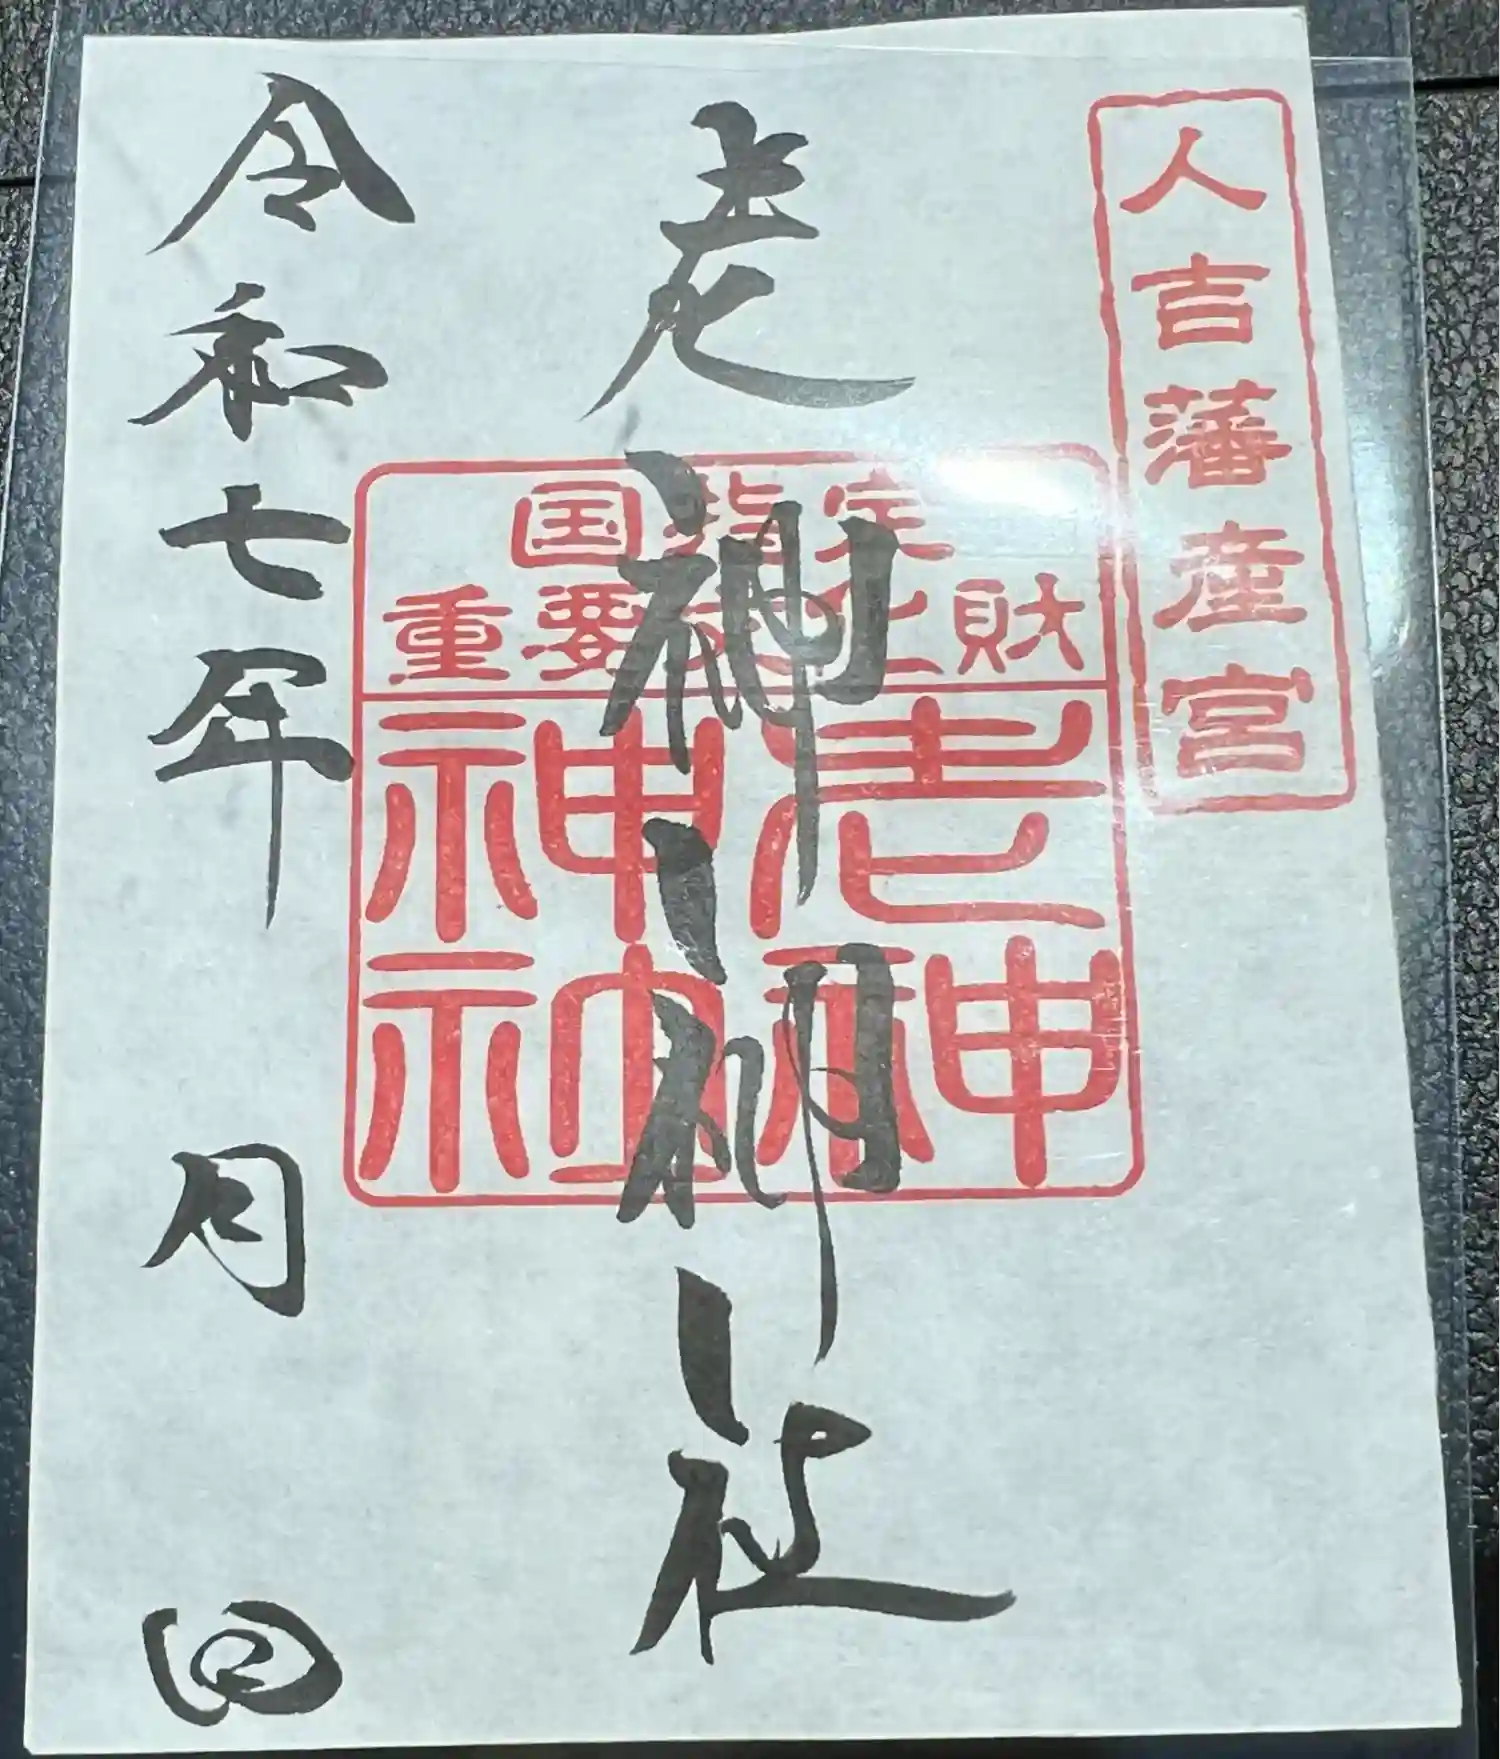 人吉藩産宮
老神神社
国指定
重要文化財
老神
神社
令和七年 月 日